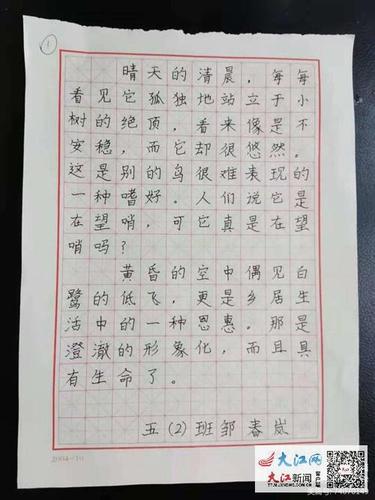 1
晴天的清晨，每每
看见它孤独地站立于小
树的绝顶，看来像是不
安稳，而它却很悠然。
这是别的鸟很难表现的
一种嗜好。人们说它是
在望哨，可它真是在望
哨吗？
黄昏的空中偶见白
鹭的低飞，更是乡居生
活中的一种恩惠。那是
澄澈的形象化，而且具
有生命了。
五（2）班邹春岚
大江网
大江新闻
客户端